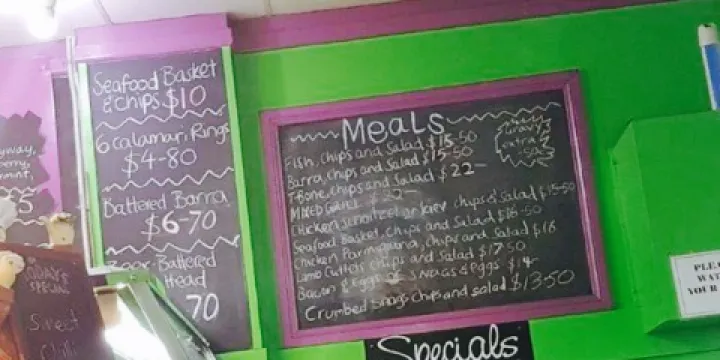 Seafood Basket
& chips $10
6 Calamari Rings
$4-80
Battered Barra
$6-70
Battered
Head
70
Meals
Fish, Chips and Salad $15-50
Barra, chips and Salad $15-50
T-Bone, chips and Salad $22-
Mixed Grill
Chicken Schnitzel or Kiev chips & Salad $15-50
Seafood Basket, Chips and Salad $16-50
Chicken Parmigiana, Chips and Salad $18
Lamb Cutlets chips and Salad $17-50
Bacon & Eggs or Snags & Eggs $14-
Crumbed Snags Chips and salad $13-50
Gravy
extra
Specials
Todays
Special
Sweet
Chilli
YOUR